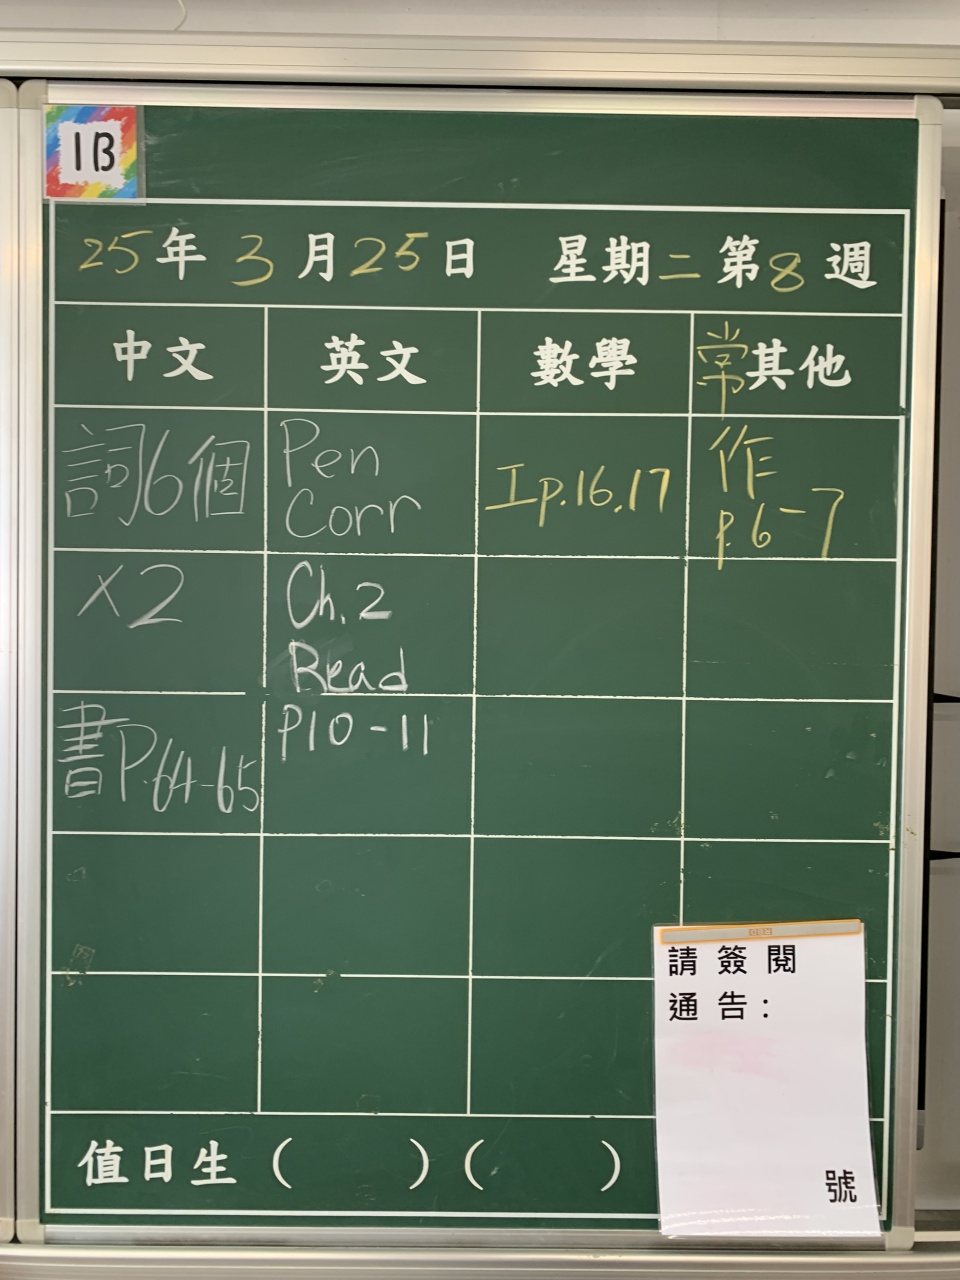 1B
25年3月25日 星期二第8週
中文 英文 數學 常其他
詞6個
×2
書P.64-65
Pen
Corr
Ch.2
Read
P10-11
Ip.16.17
作
p.6-7
請簽閱
通告:
號
值日生( )( )